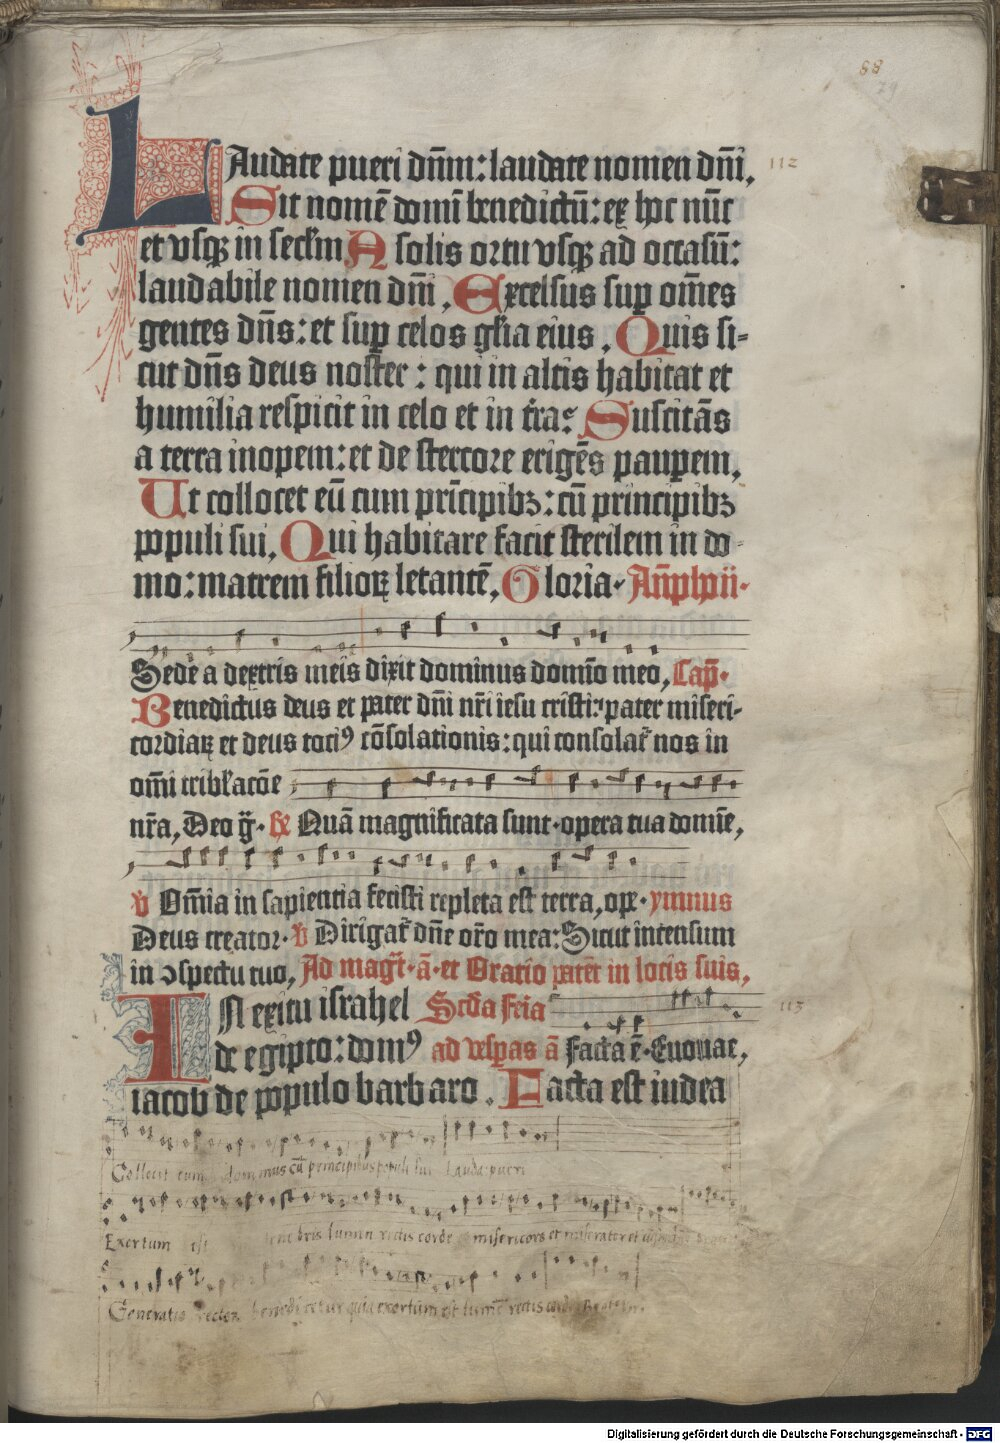 88
79
LAudate pueri dn̄m: laudate nomen dn̄i,
112
Sit nomē domī benedictū: ex hoc nūc
et vsqꝫ in seclm A solis ortu vsqꝫ ad occasū:
laudabile nomen dn̄i, Excelsus suꝑ om̄es
gentes dn̄s: et suꝑ celos glīa eius. Quis si-
cut dn̄s deus noster: qui in altis habitat et
humilia respicit in celo et in t̄ra? Suscitās
a terra inopem: et de stercore erigēs pauꝑem,
Ut collocet eū cum prīcipibꝫ: cū principibꝫ
populi sui, Qui habitare facit sterilem in do-
mo: matrem filioꝝ letantē, Gloria. An̄
Sede a dextris meis dixit dominus domīo meo, Cap̄.
Benedictus deus et pater dn̄i nr̄i iesu cristi: pater miseri-
cordiaꝝ et deus totiꝰ cōsolationis: qui consolat̄ nos in
om̄i tribl̄acōe
nr̄a, Deo g̃. ℟ Quā magnificata sunt opera tua domīe,
℣ Om̄ia in sapientia fecisti repleta est terra, oꝑ. ymnus
Deus creator. ℣ Dirigat̄ dn̄e or̄o mea: Sicut incensum
in ꝯspectu tuo, Ad mag̃t. ā. et Oratio patēt in locis suis,
IN exitu israhel Sc̄da feīa
113
de egipto: domꝰ ad vesꝑas ā Facta ē. Euouae,
iacob de populo barbaro. Facta est iudea
Collocit eum dominus cū principibus populi sui Lauda: pueri
Exortum est tenebris lumen rectis corde misericors et miserator et
Generatio rector benedicetur quia exortum est lumē rectis corde
Digitalisierung gefördert durch die Deutsche Forschungsgemeinschaft - DFG